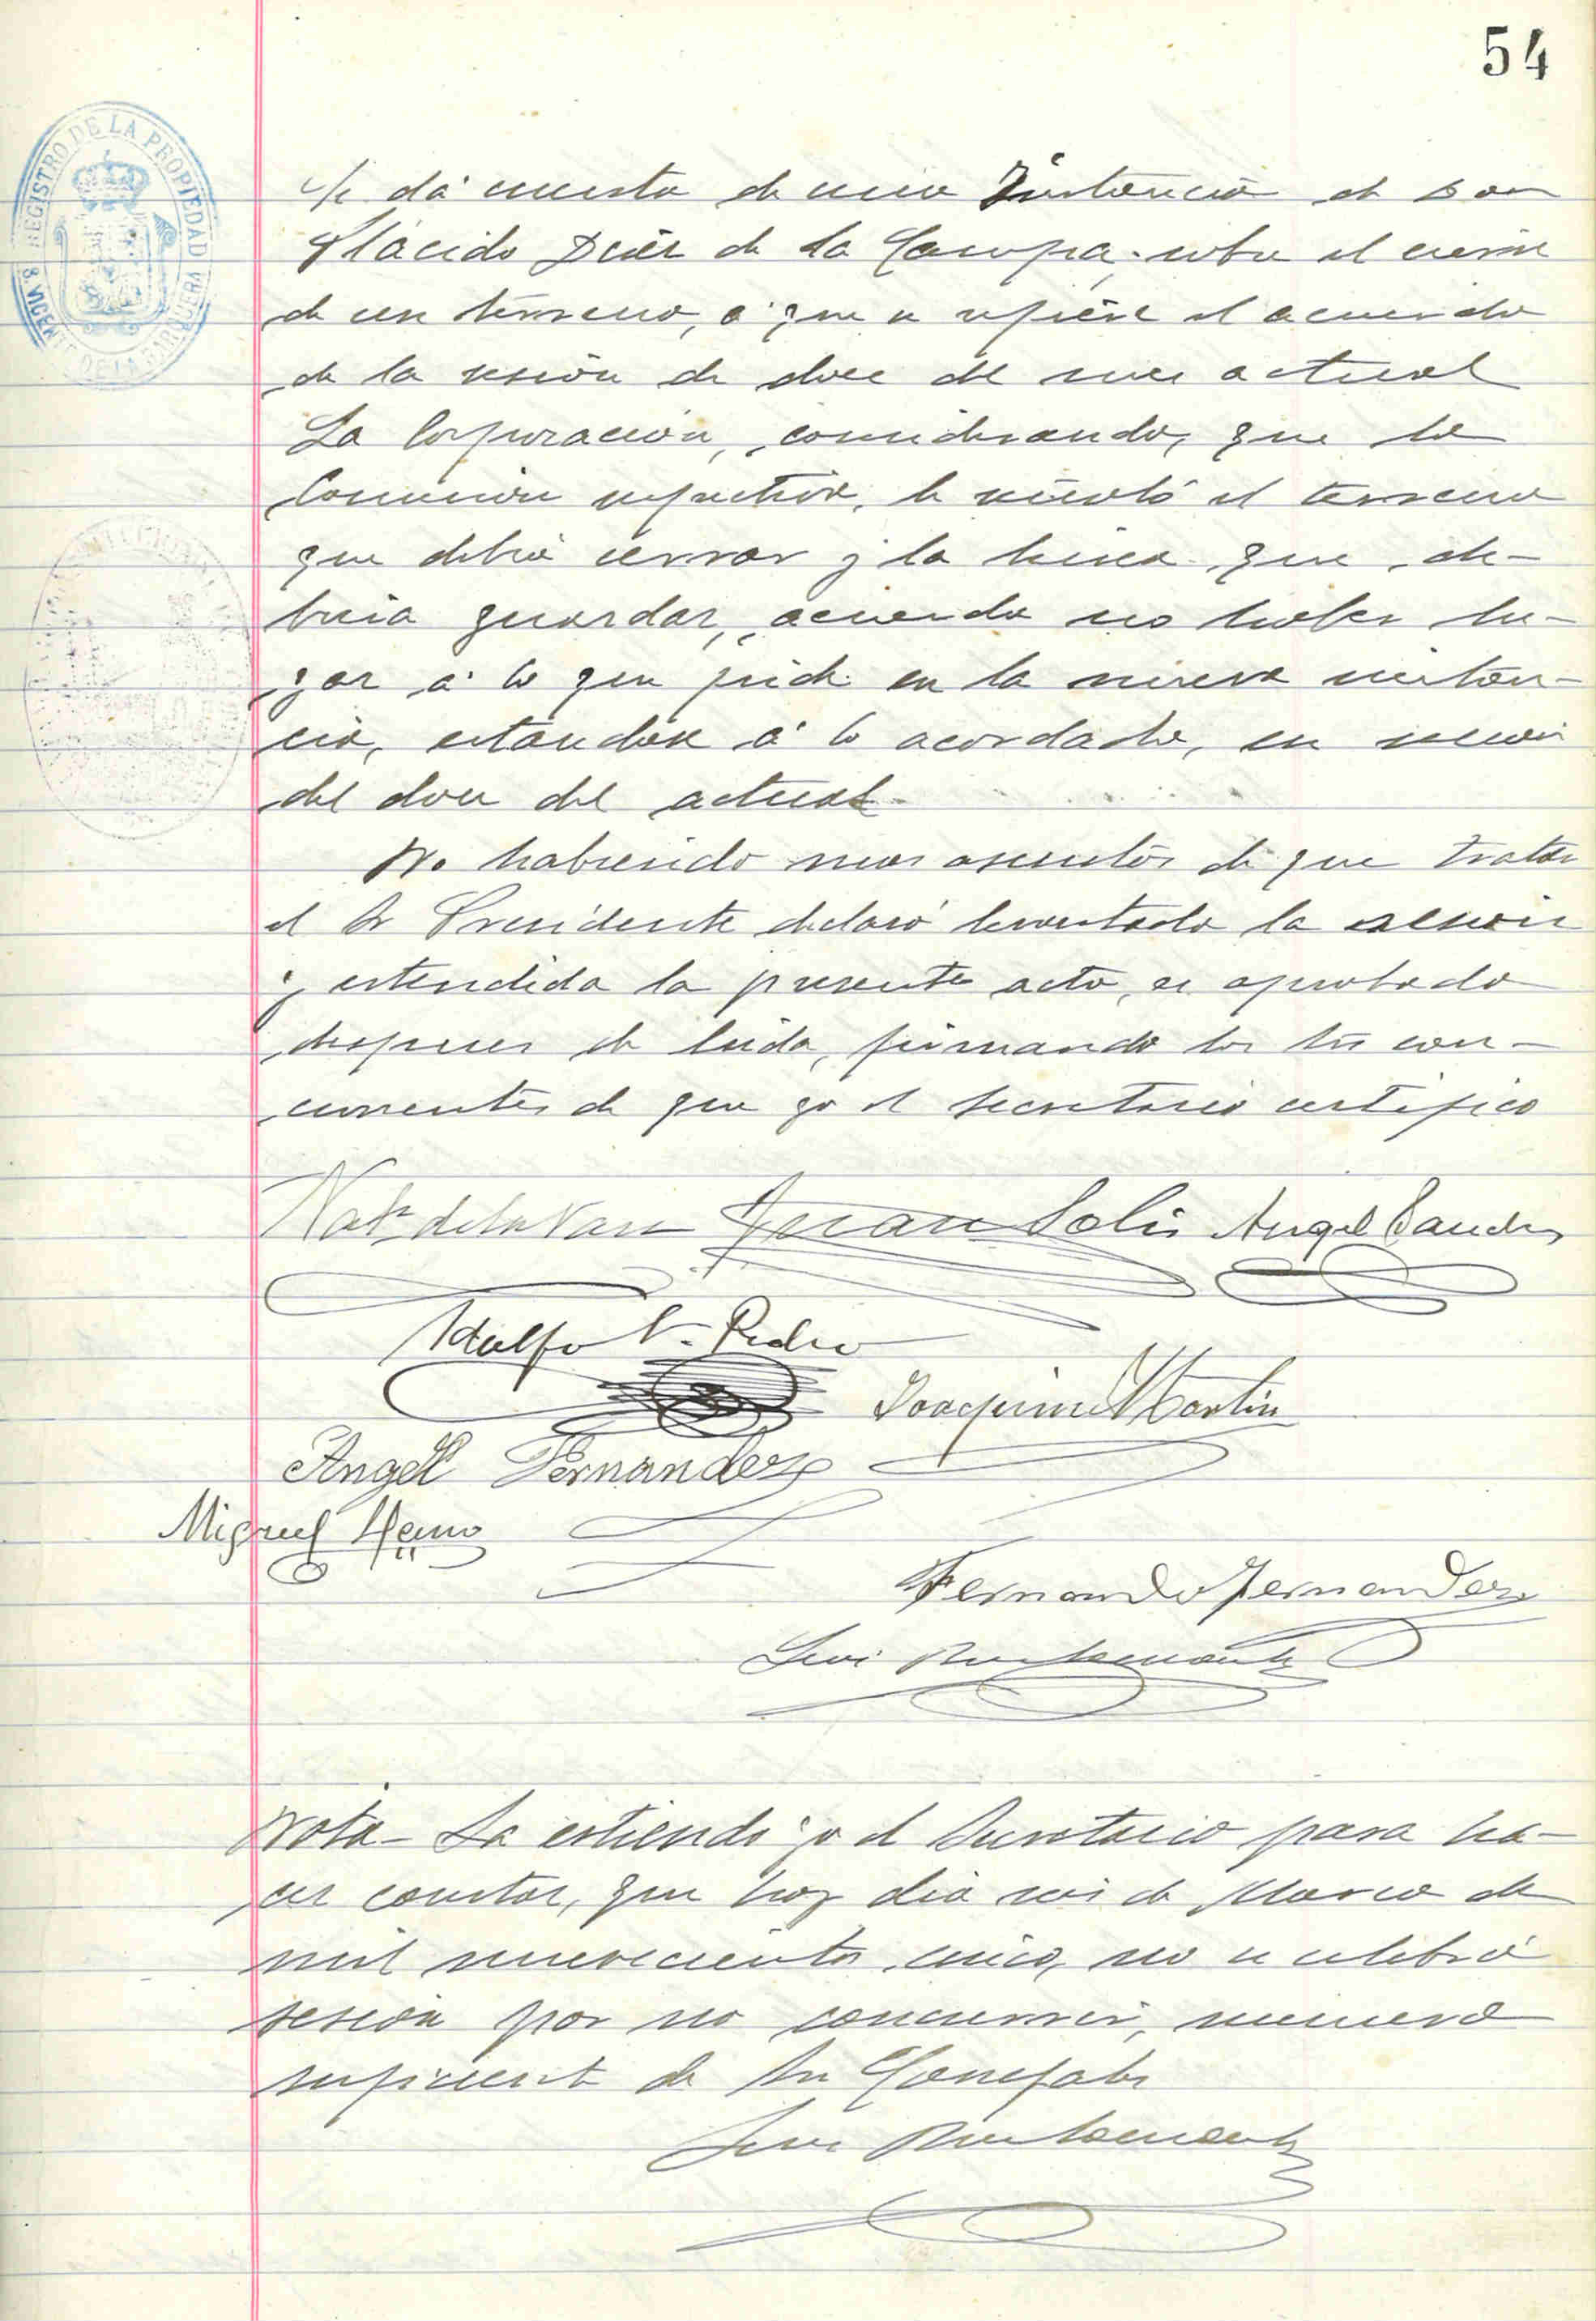 54
REGISTRO DE LA PROPIEDAD
S. VICENTE DE LA BARQUERA
Se dá cuenta de una Instancia de Don
Plácido Diaz de la Campa, sobre el cierre
de un terreno, á que se refiere el acuerdo
de la sesión de doce del mes actual
La Corporación, considerando, que la
Comisión respectiva, le señaló el terreno
que debia cerrar y la linea que de-
bria guardar, acuerda no haber lu-
gar á lo que pide en la nueva instan-
cia, estandose á lo acordado, en sesion
del doce del actual.
No habiendo mas asuntos de que tratar
el Sr Presidente declaró levantada la sesion
y estendida la presente acta, es aprobada
despues de leida, firmando los Srs con-
currentes de que yo el Secretario certifico
Juan Solis Angel Sanchez
Adolfo V. Pedro
Joaquin Martin
Angel Fernandez
Miguel
Fernando Fernandez
Luis Bustamante
Nota- La estiendo yo el Secretario para ha-
cer constar, que hoy dia seis de Marzo de
mil novecientos cinco, no se celebró
sesión por no concurrir, numero
suficiente de Srs Concejales
Luis Bustamante